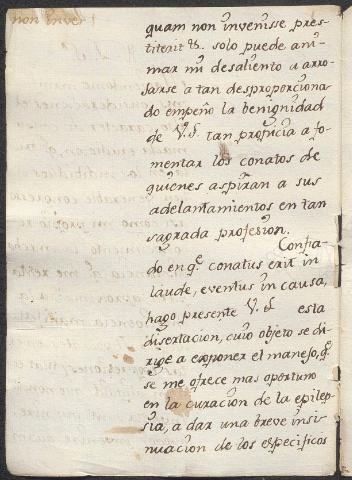 non inver
quam non invenisse pres-
titerit &. solo puede ani-
mar mi desaliento a arro-
jarse a tan desproporciona-
do empeño la benignidad
de V.S. tan propicia a fo-
mentar los conatos de
quienes aspiran a sus
adelantamientos en tan
sagrada profesion.
Confia-
do en q.e conatus erit in
laude, eventus in causa,
hago presente V.S. esta
disertacion, cuio objeto se di-
rige a exponer el manejo, q.e
se me ofrece mas oportuno
en la curacion de la epilep-
sia, a dar una breve insi-
nuacion de los especificos